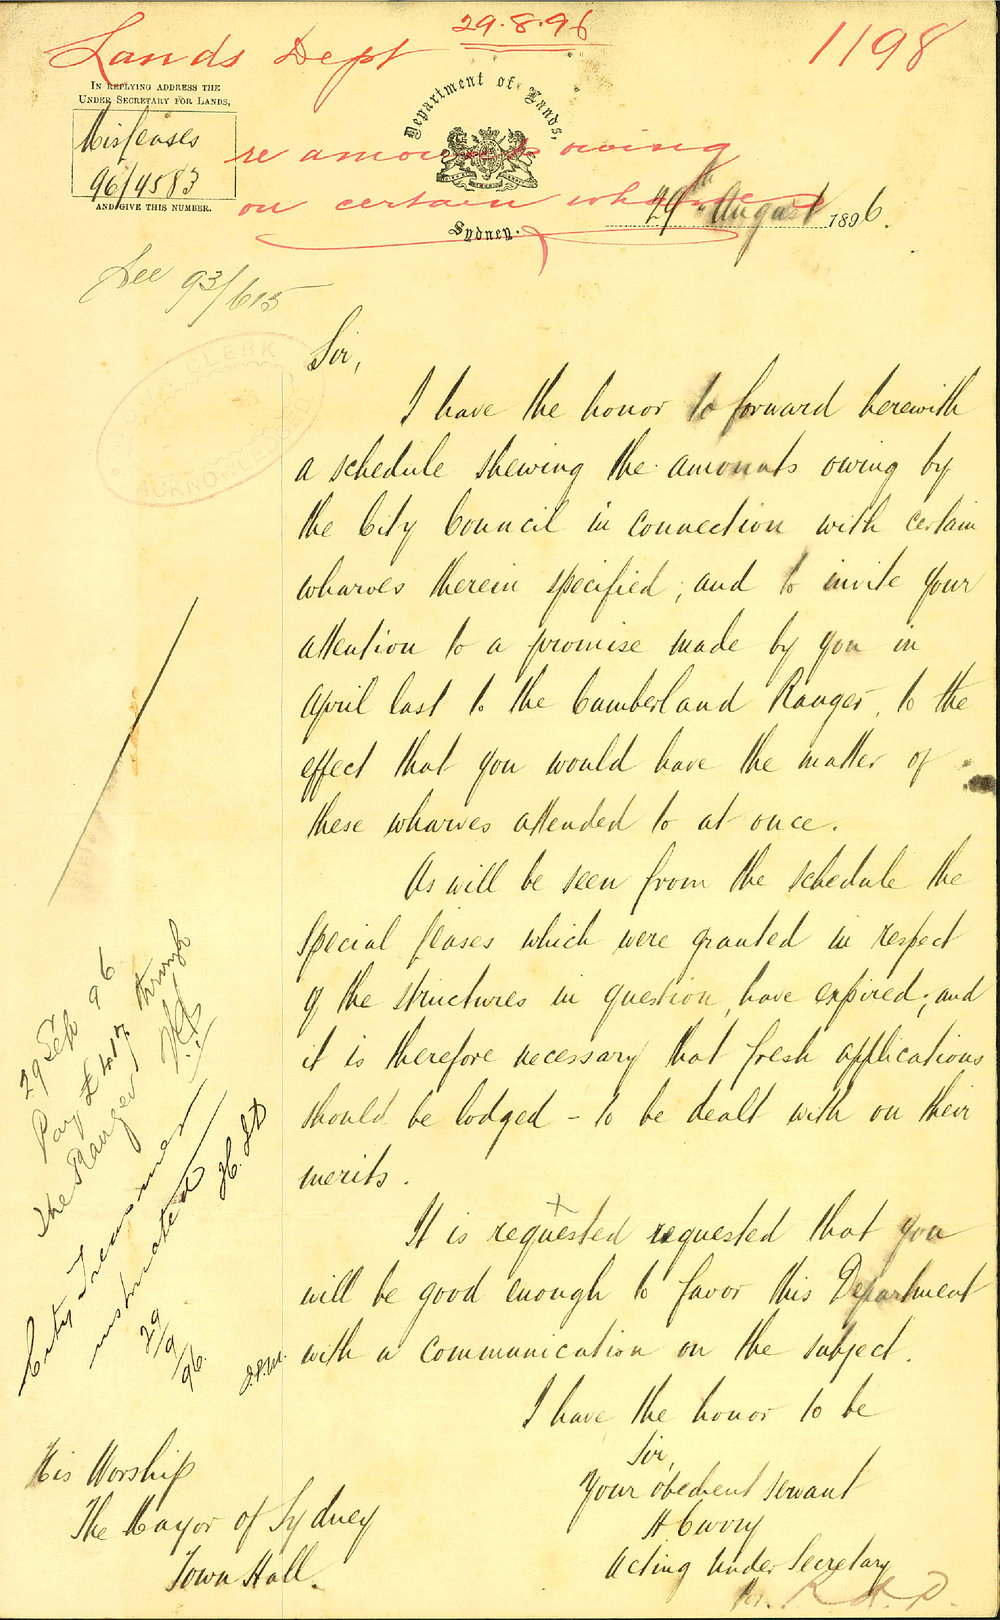 29.8.96
Lands Dept
1198
IN REPLYING ADDRESS THE
UNDER SECRETARY FOR LANDS,
Misleases
96/4583
AND GIVE THIS NUMBER.
Department of Lands,
Sydney.
re amounts owing
on certain wharves
29th August 1896.
See 93/615
TOWN CLERK
ACKNOWLEDGED
Sir,
I have the honor to forward herewith
a schedule shewing the amounts owing by
the City Council in connection with certain
wharves therein specified, and to invite your
attention to a promise made by you in
April last to the Cumberland Ranger, to the
effect that you would have the matter of
these wharves attended to at once.
As will be seen from the schedule the
special leases which were granted in respect
of the structures in question, have expired; and
it is therefore necessary that fresh applications
should be lodged - to be dealt with on their
merits.
It is reqxested requested that you
will be good enough to favor this Department
with a communication on the subject.
I have the honor to be
Sir,
Your obedient servant
Acting Under Secretary
29 Sep 96
Pay £ through
The Ranger
City Treasurer
instructed
29/9/96.
His Worship
The Mayor of Sydney
Town Hall.